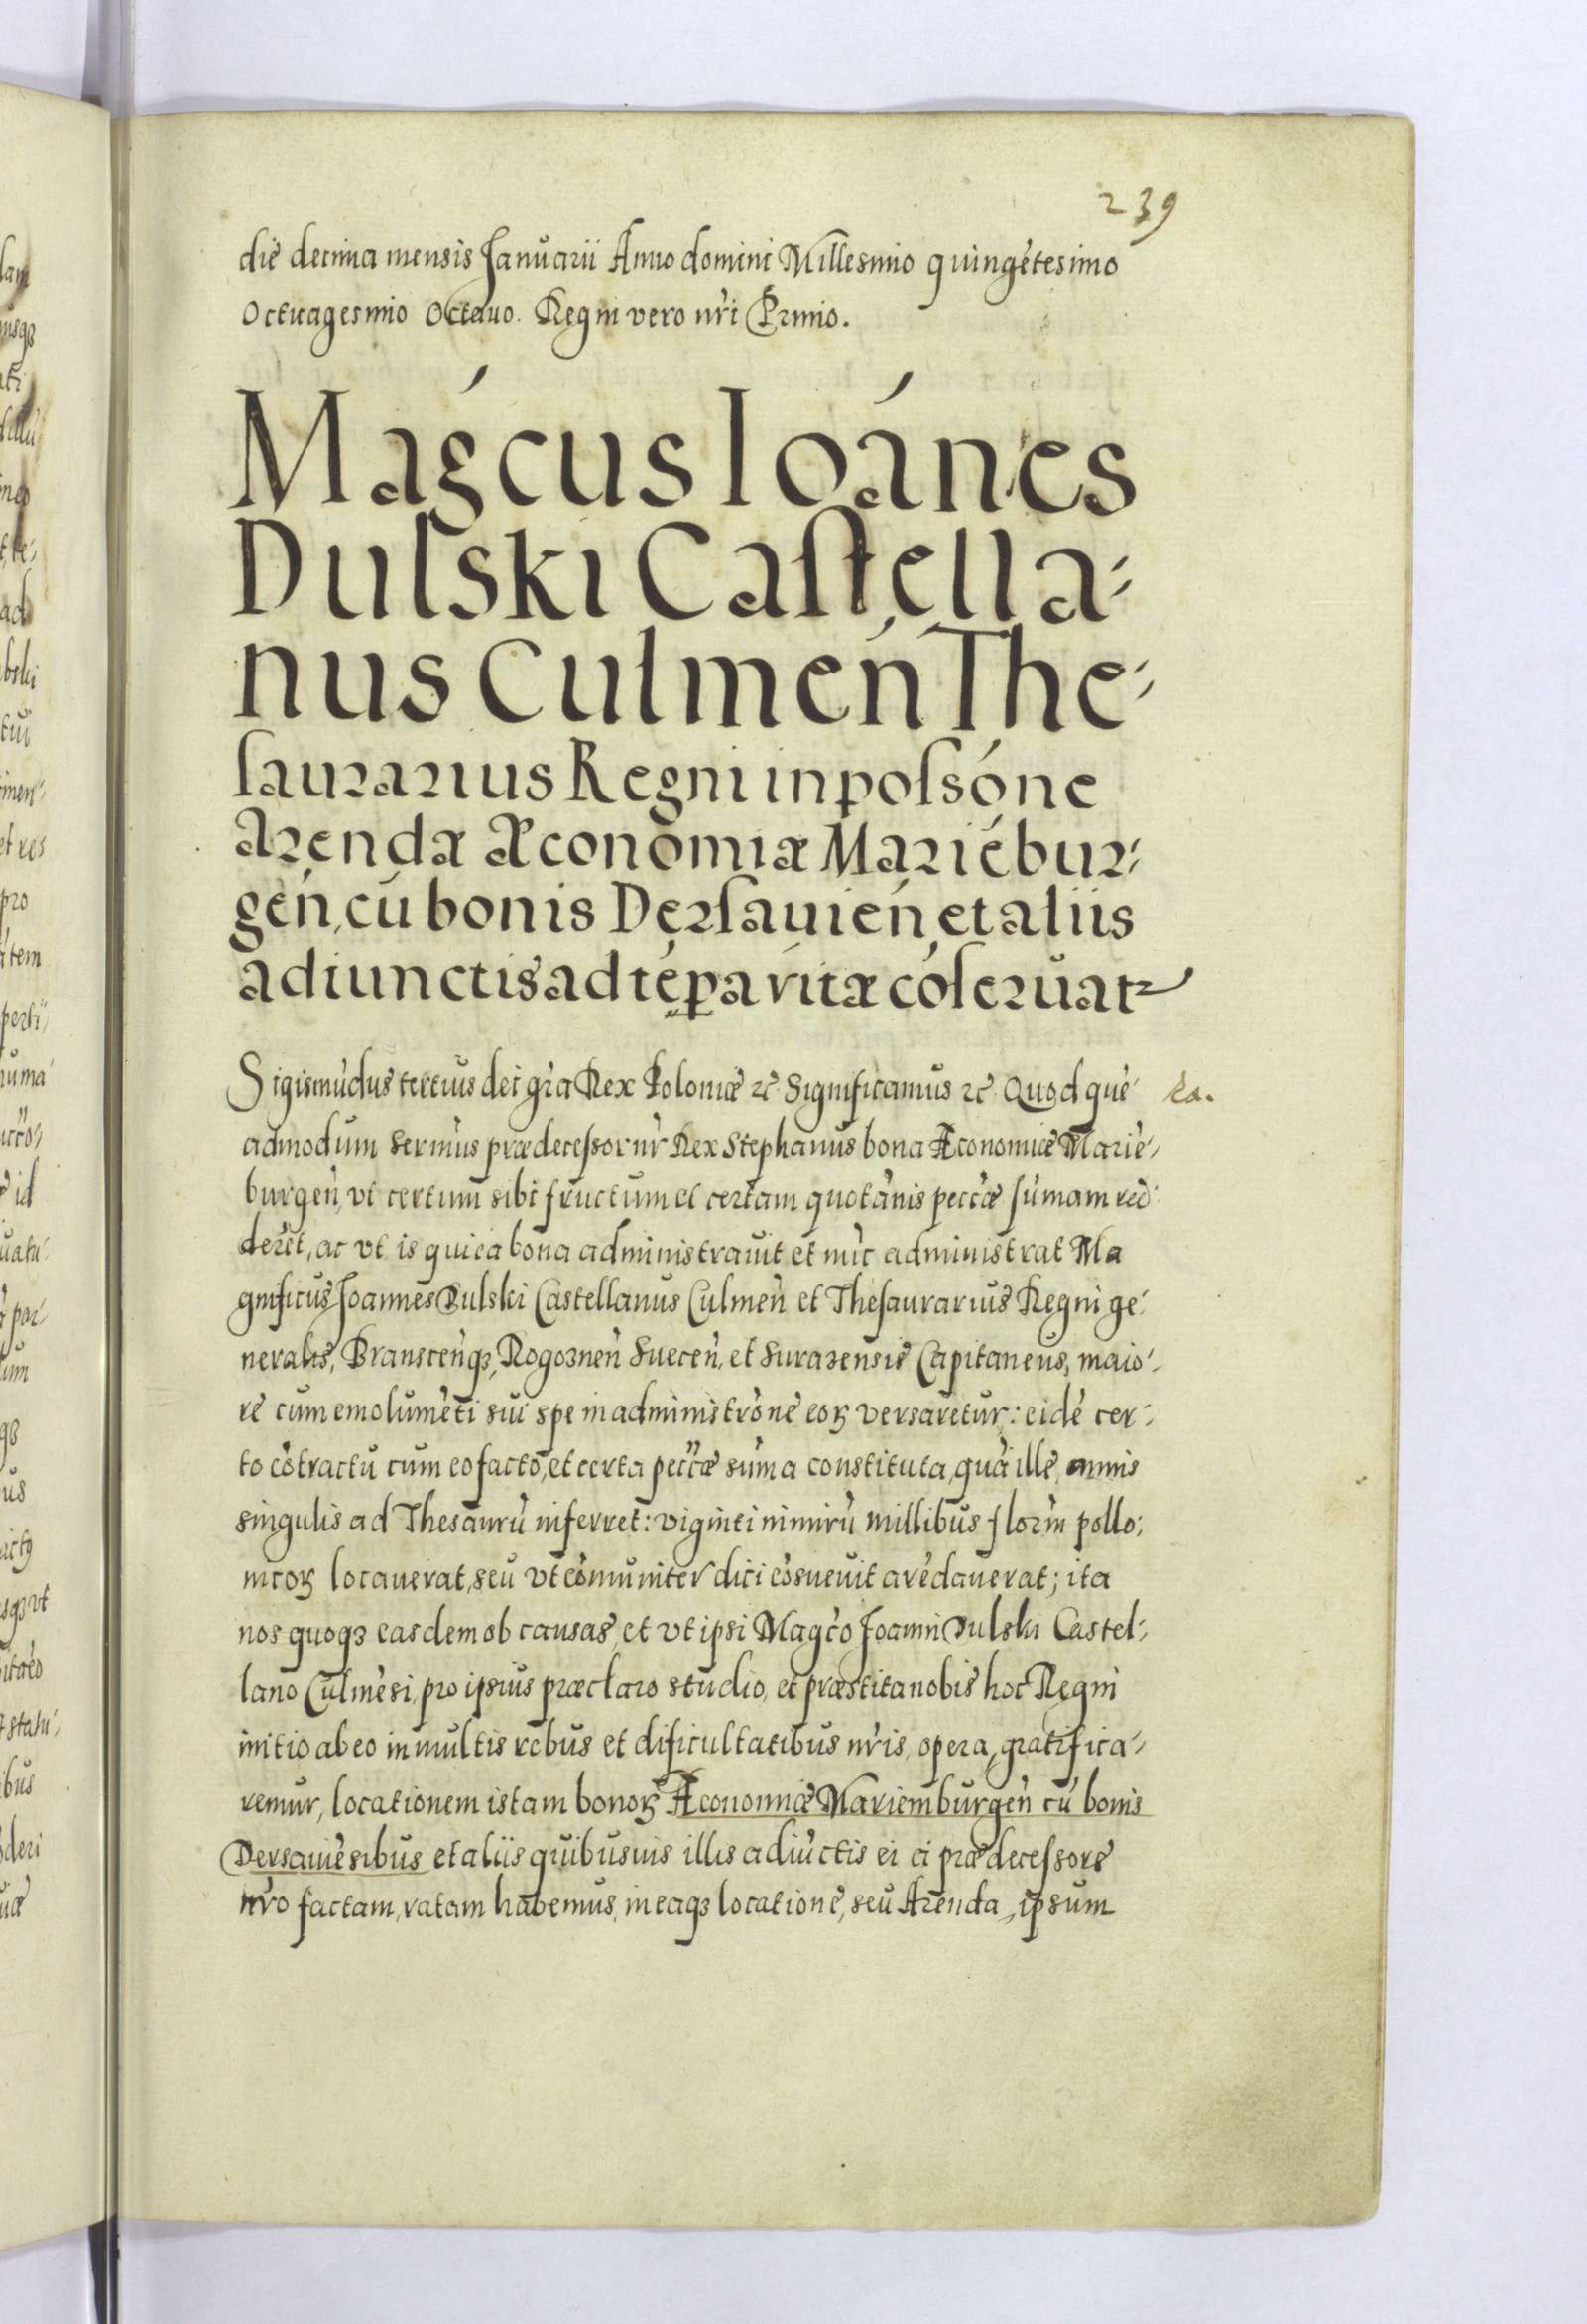 239
die decima mensis Januarii Anno domini Millesimo quingẽtesimo
Octuagesimo Octauo. Regni vero nr̃i Primo.
Magćus Ioánes
Dulski Castella-
nus Culmeń The-
saurarius Regni in possóne
Arendæ Æconomiæ Mariébur-
geń, cú bonis Dersauień, et aliis
adiunctis ad tépa vitæ cóseruatr
Sigismũdus tertius dei gr̃a Rex Poloniæ ꝛc Significamus ꝛc Quod quẽ
ea.
admodum Serm̃us prædecessor nr̃ Rex Stephanus bona Æconomiæ Mariẽ-
burgeñ, vt certum sibi fructum et certam quotãnis pecc̃æ sũmam red
derẽt, ac vt is qui ea bona administrauit et nũc administrat Ma
gnificus Joannes Dulski Castellanus Culmeñ et Thesaurarius Regni ge-
neralis, Branscenq̃ꝫ, Rogoznen̄ Suecen̄, et Surazensis Capitaneus, maio-
re cum emolumẽti sui spe in administrõne eoꝝ versaretur: eidẽ cer-
to cõtractu cum eo facto, et certa pecc̃æ sum̃a constituta, quã ille annis
singulis ad Thesaurũ inferret: viginti nimirũ millibus florm̃ pollo-
nicoꝝ locauerat, seu vt cõmuniter dici cõsueuit arẽdauerat; ita
nos quoqꝫ easdem ob causas, et vt ipsi Magc̃o Joanni Dulski Castel-
lano Culmẽsi, pro ipsius præclaro studio, et præstita nobis hoc Regni
initio ab eo in multis rebus et dificultatibus nr̃is, opera, gratifica-
remur, locationem istam bonoꝝ Æconomiæ Mariemburgeñ cũ bonis
Dersauiẽsibus et aliis quibusuis illis adiũctis ei a prædecessore
nr̃o factam, ratam habemus, in eaqꝫ locatione, seu Arenda, ipsum